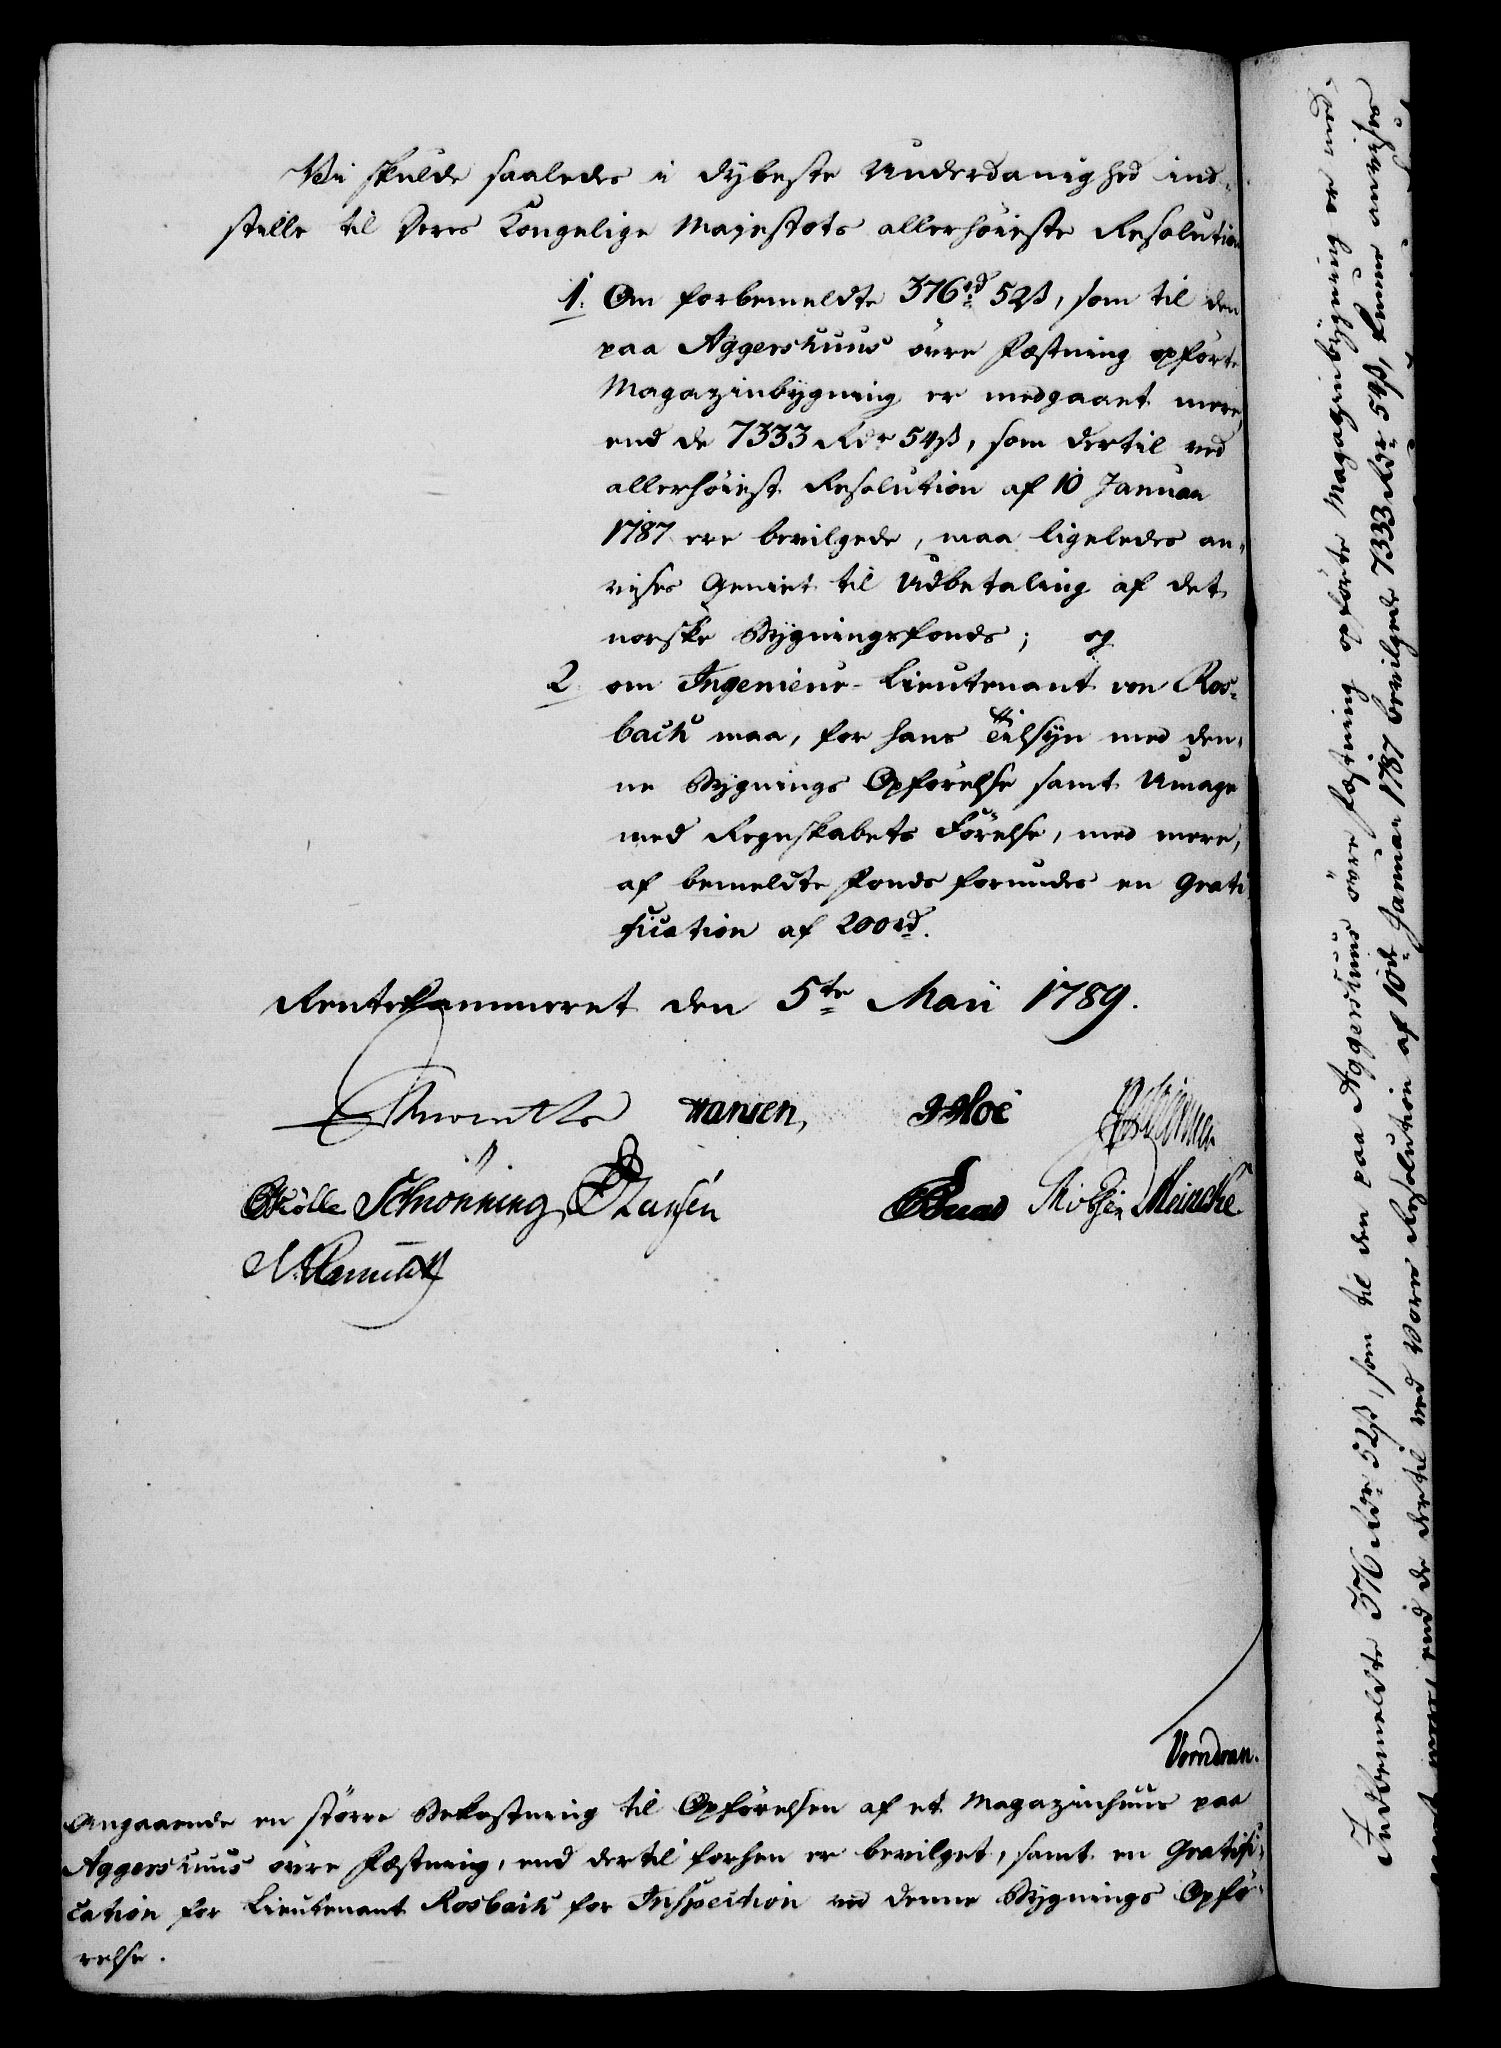 Vi skulde saaledes i dybeste Underdanighed ind-
stille til Deres Kongelige Majestæts allerhöieste Resolution
1. Om forbemeldte 376 rd 52 ß, som til den
paa Aggershuus övre Fæstning opförte
Magazinbygning er medgaaet mere,
end de 7333 Rdr 54 ß, som dertil ved
allerhöiest Resolution af 10 Januar
1787 ere bevilgede, maa ligeledes an-
vises Geniet til Udbetaling af det
norske Bygningsfonds; og
2. om Ingenieur-Lieutenant von Ros-
bach maa, for hans Tilsyn med den-
ne Bygnings Opförelse samt Umage
med Regnskabets Förelse, med mere,
af bemeldte Fonds forundes en Grati-
fication af 200 rd.
Rentekammeret den 5te Maii 1789.
Hansen,
Schiönning Hansen Meincke
Vorndran.
Angaaende en större Bekostning til Opförelsen af et Magazinhuus paa
Aggershuus övre Fæstning, end dertil forhen er bevilget, samt en Gratifi-
cation for Lieutenant Rosbach for Inspection ved denne Bygnings Opfö-
relse.
Indbemeldte 376 Rdr 52 ß, som til den paa Aggershuus övre Fæstning opförte Magazinbygning er med-
gaaet mere, end de dertil ved Vores Resolution af 10de Januar 1787 bevilgede 7333 Rdr 54 ß, kunne anvises